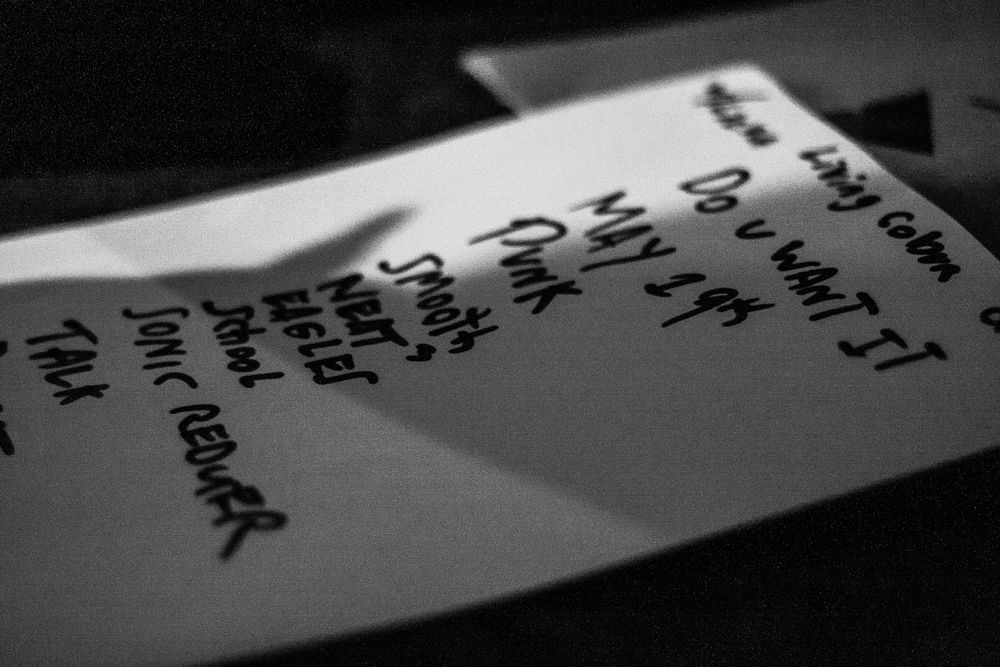 Living
DO U WANT IT
MAY 1
PUNK
SMOOTH
NEAT "
EAGLES
SCHOOL
SONIC REDUCER
TALK